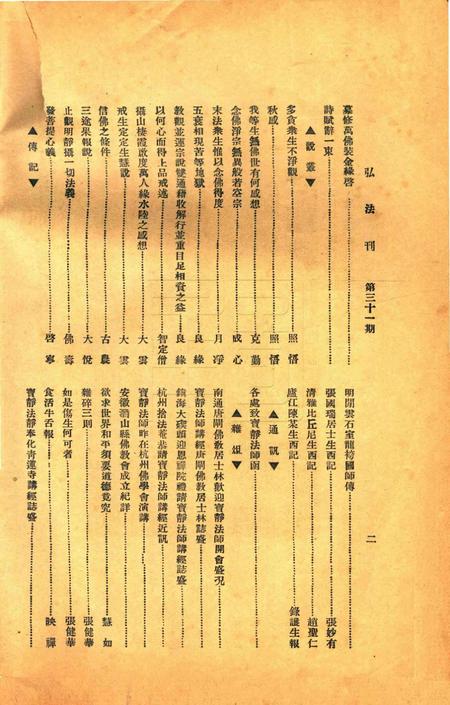 弘法刊 第三十一期 二
募修萬佛裝金緣啓
詩賦辭一束
▲說叢▼
多貪衆生不淨觀 照悟
秋感 照悟
我等生無佛世有何感想 克勤
念佛淨宗無異般若空宗 成心
末法衆生惟以念佛得度 月淨
五衰相現苦等地獄 良緣
敎觀並運宗說雙通藉收解行並重目足相資之益 良緣
以何心而得上品戒述 智定僧
攝山棲霞啟度萬人緣水陸之感想 大雲
戒生定定生慧說 大雲
信佛之條件 古農
三途果報說 大悅
止觀明靜攝一切法義 佛壽
發菩提心義 啓寧
▲傳記▼
明閉雲石室龍袴國師傳
張國瑞居士生西記 張妙有
清雅比丘尼生西記 趙聖仁
廬江陳某生西記 錄護生報
▲通訊▼
各處致寶靜法師函
▲雜俎▼
南通唐閘佛敎居士林歡迎寶靜法師開會盛况
寶靜法師講經唐閘佛敎居士林誌盛
鎭海大碶頭迎恩禪院禮請寶靜法師講經誌盛
杭州拾法菴恭請寶靜法師講經近訊
寶靜法師昨在杭州佛學會演講
安徽潛山縣佛敎會成立紀詳
欲求世界和平須要道德竟究 慧如
雜碎三則 張健華
如是傷生何可者 張健華
食活牛舌報 映禪
寶靜法師奉化青蓮寺講經誌盛